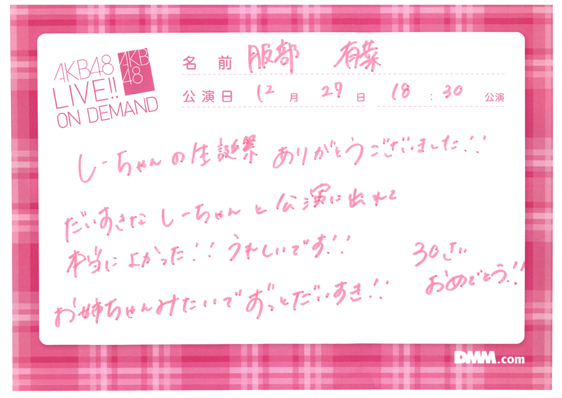 AKB48
LIVE!!
ON DEMAND
AKB
48
名前 服部 有菜
公演日 12月 27日 18:30 公演
しーちゃんの生誕祭 ありがとうございました!!
だいすきな しーちゃんと公演に出れて
本当によかった!! うれしいです!!
30さい
おめでとう!!
お姉ちゃんみたいでずっとだいすき!!
DMM.com